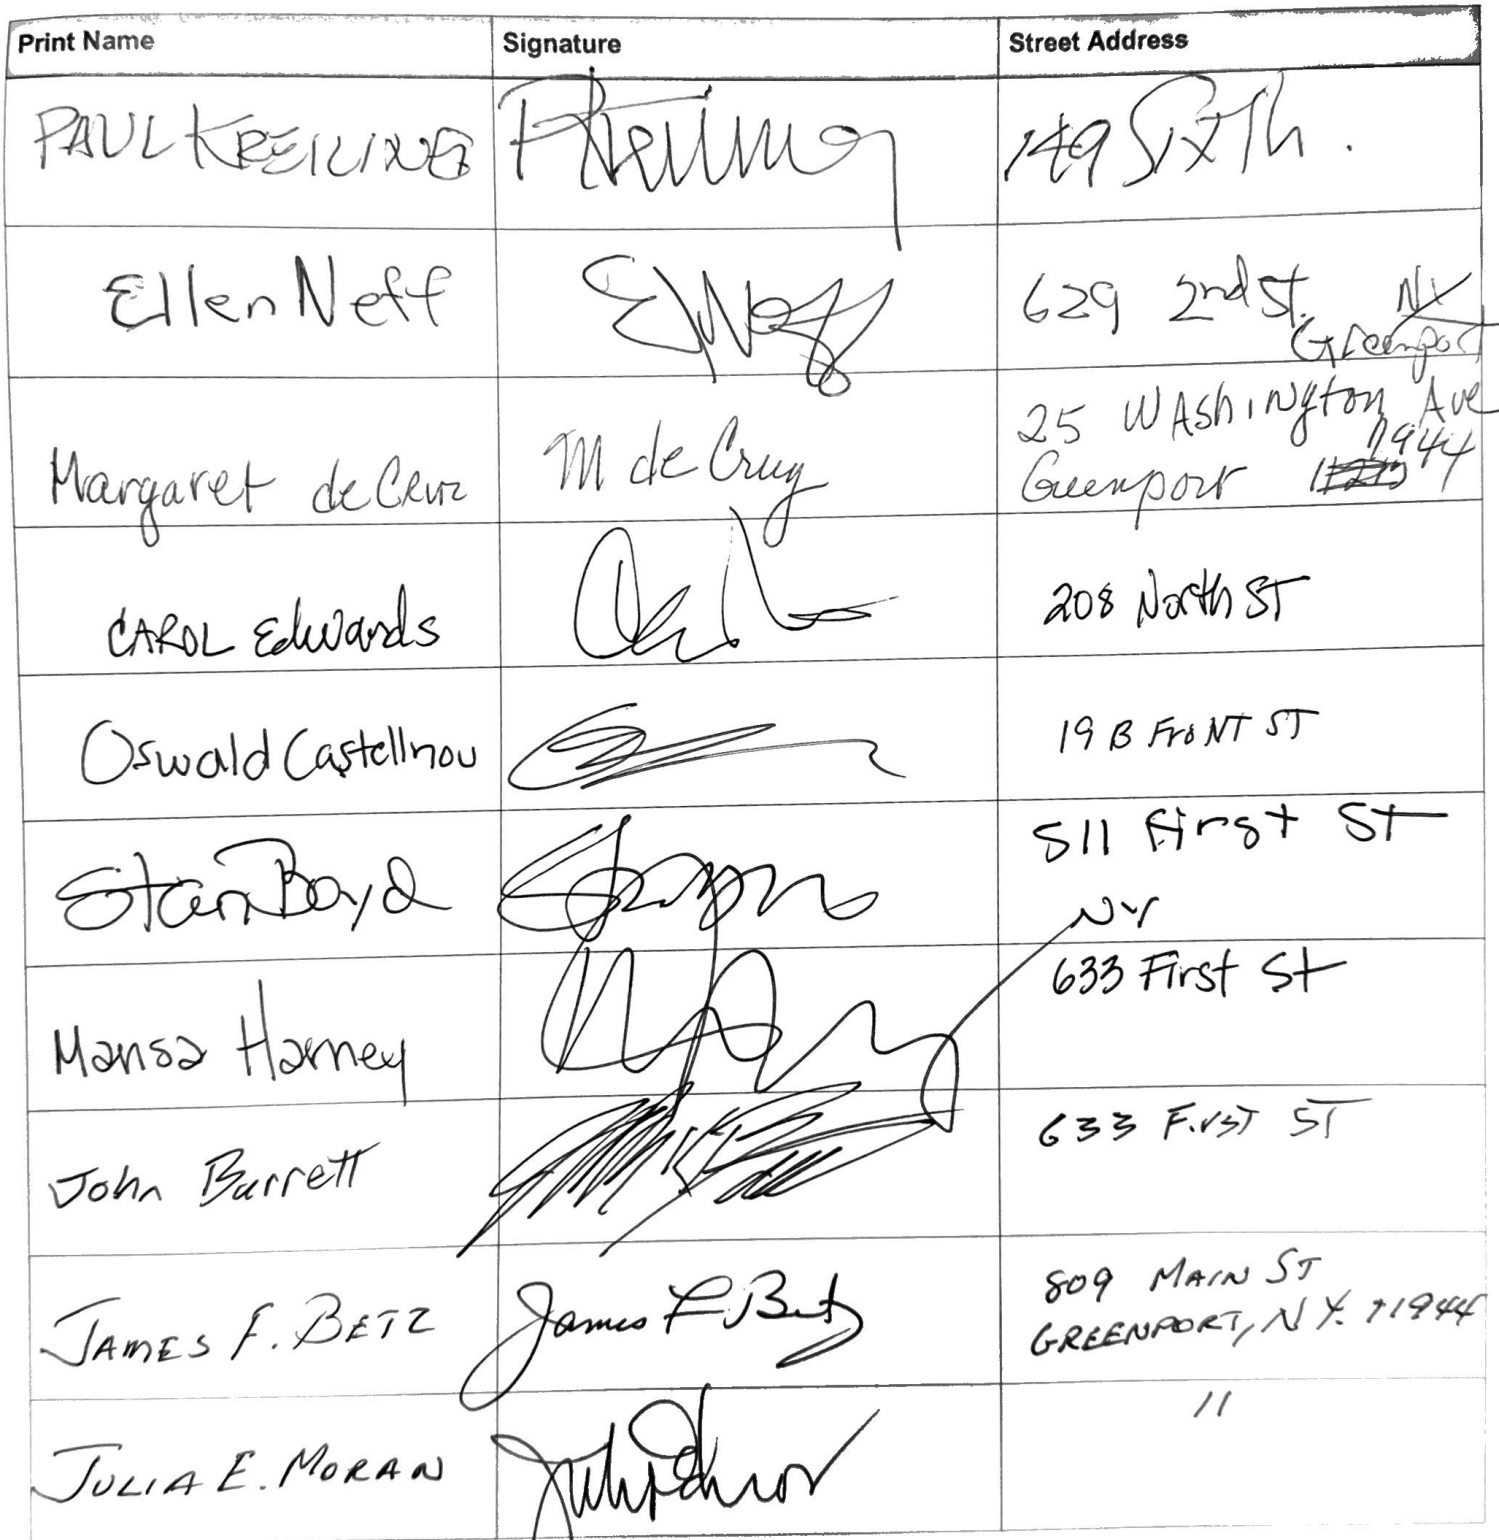 Print Name Signature Street Address
PAUL KREILING 149 Sixth .
Ellen Neff 629 2nd St. NY
Greenport
Margaret de Cruz M de Cruz 25 Washington Ave
Greenport 11944
CAROL Edwards 208 North ST
Oswald Castellnou 19 B FroNT ST
Stan Boyd 511 First ST
NY
Harney 633 First St
John Barrett 633 First ST
JAMES F. BETZ James F Betz 809 MAIN ST
GREENPORT, N.Y. 11944
JULIA E. MORAN "